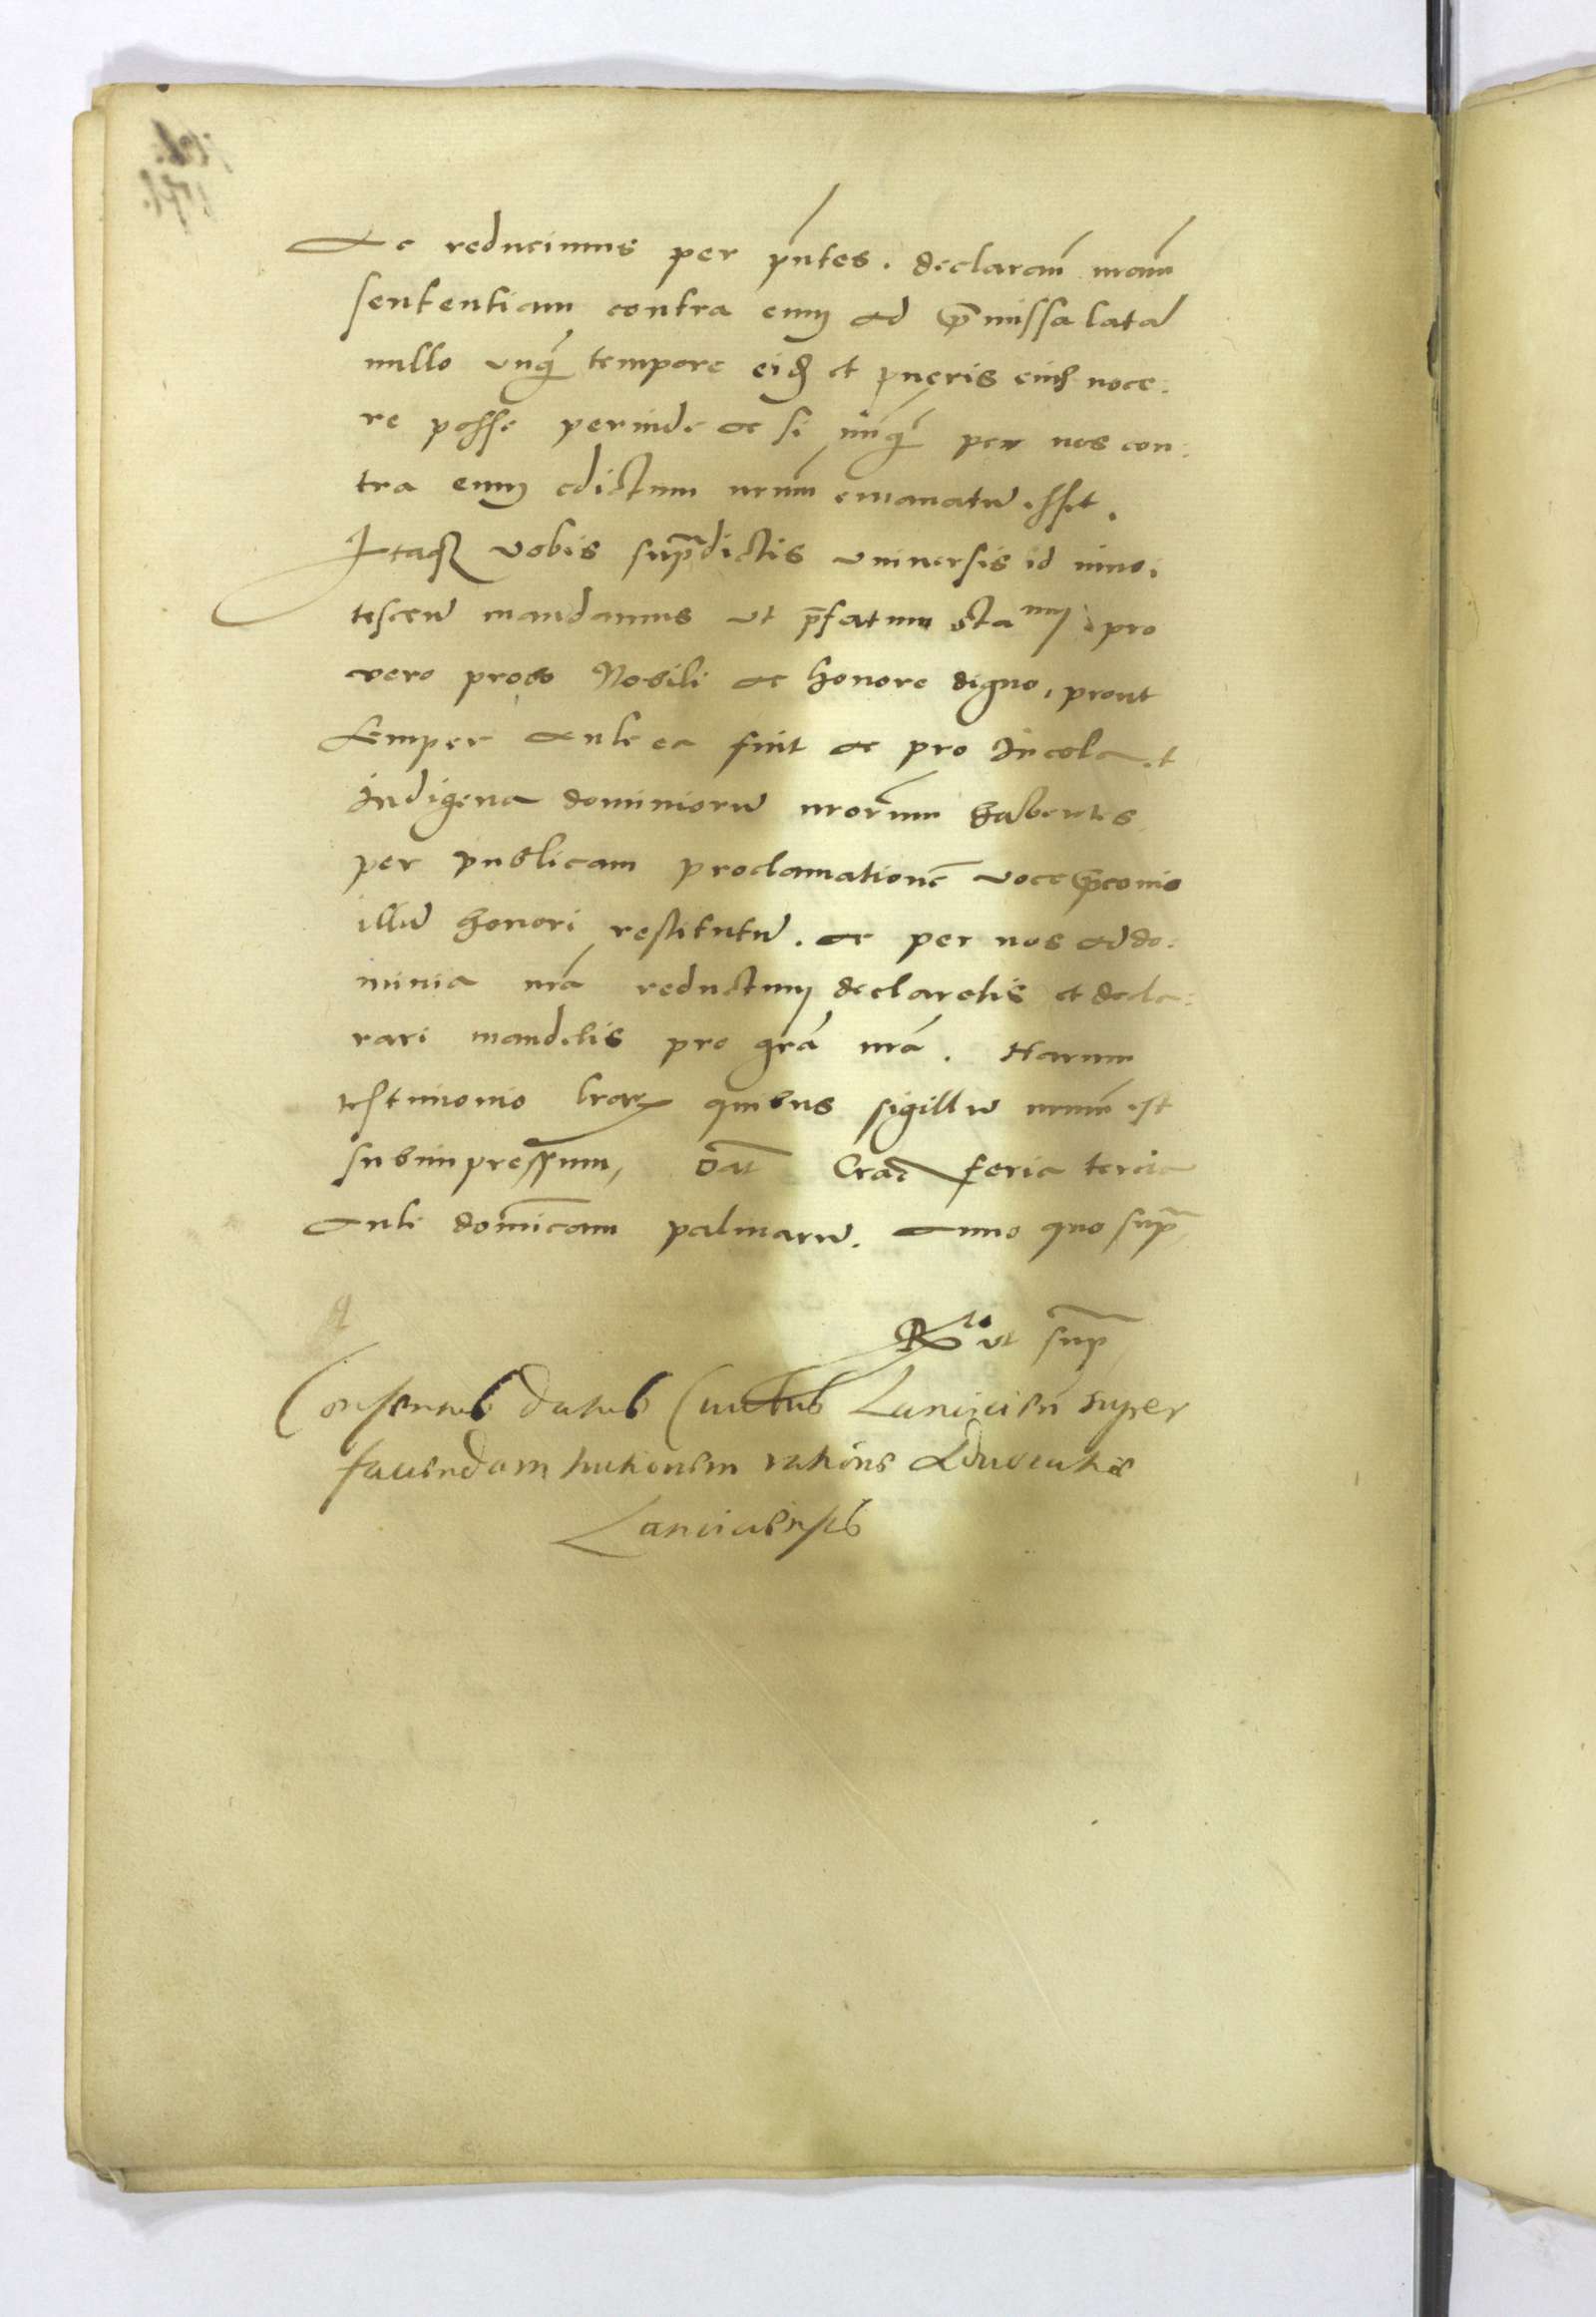 ac reducimus per p̃ntes. declaram̃ nram̃
sententiam contra eum ad p̃missa latã
nullo unq̃ tempore eidẽ et pueris eius noce:
re posse perinde ac si nunq̃ per nos con:
tra eum edictum nrum̃ emanatũ esset.
Itaq̃ vobis supradictis universis id inno:
tescen̄ mandamus ut p̃fatum Sta^num pro
vero probo Nobili ac honore digno, prout
semper antea fuit ac pro Incola et
Indigena dominiorũ nrorum̃ habentes
per publicam proclamationẽ voce p̃conis
illũ honori restitutũ. ac per nos ad do:
minia nrã reductum declaretis et decla:
rari mandetis pro grã nrã. Harum
testimonio lrarum quibus sigillũ nrum̃ est
subimpressum, Dat̃ Crac̃ feria tercia
ante domĩcam palmarũ. Anno quo sup̃
R^to ut sup̃
Consensus datus Lancicieñ super
faciendam ratiõne Advocatie
Lanciciensis